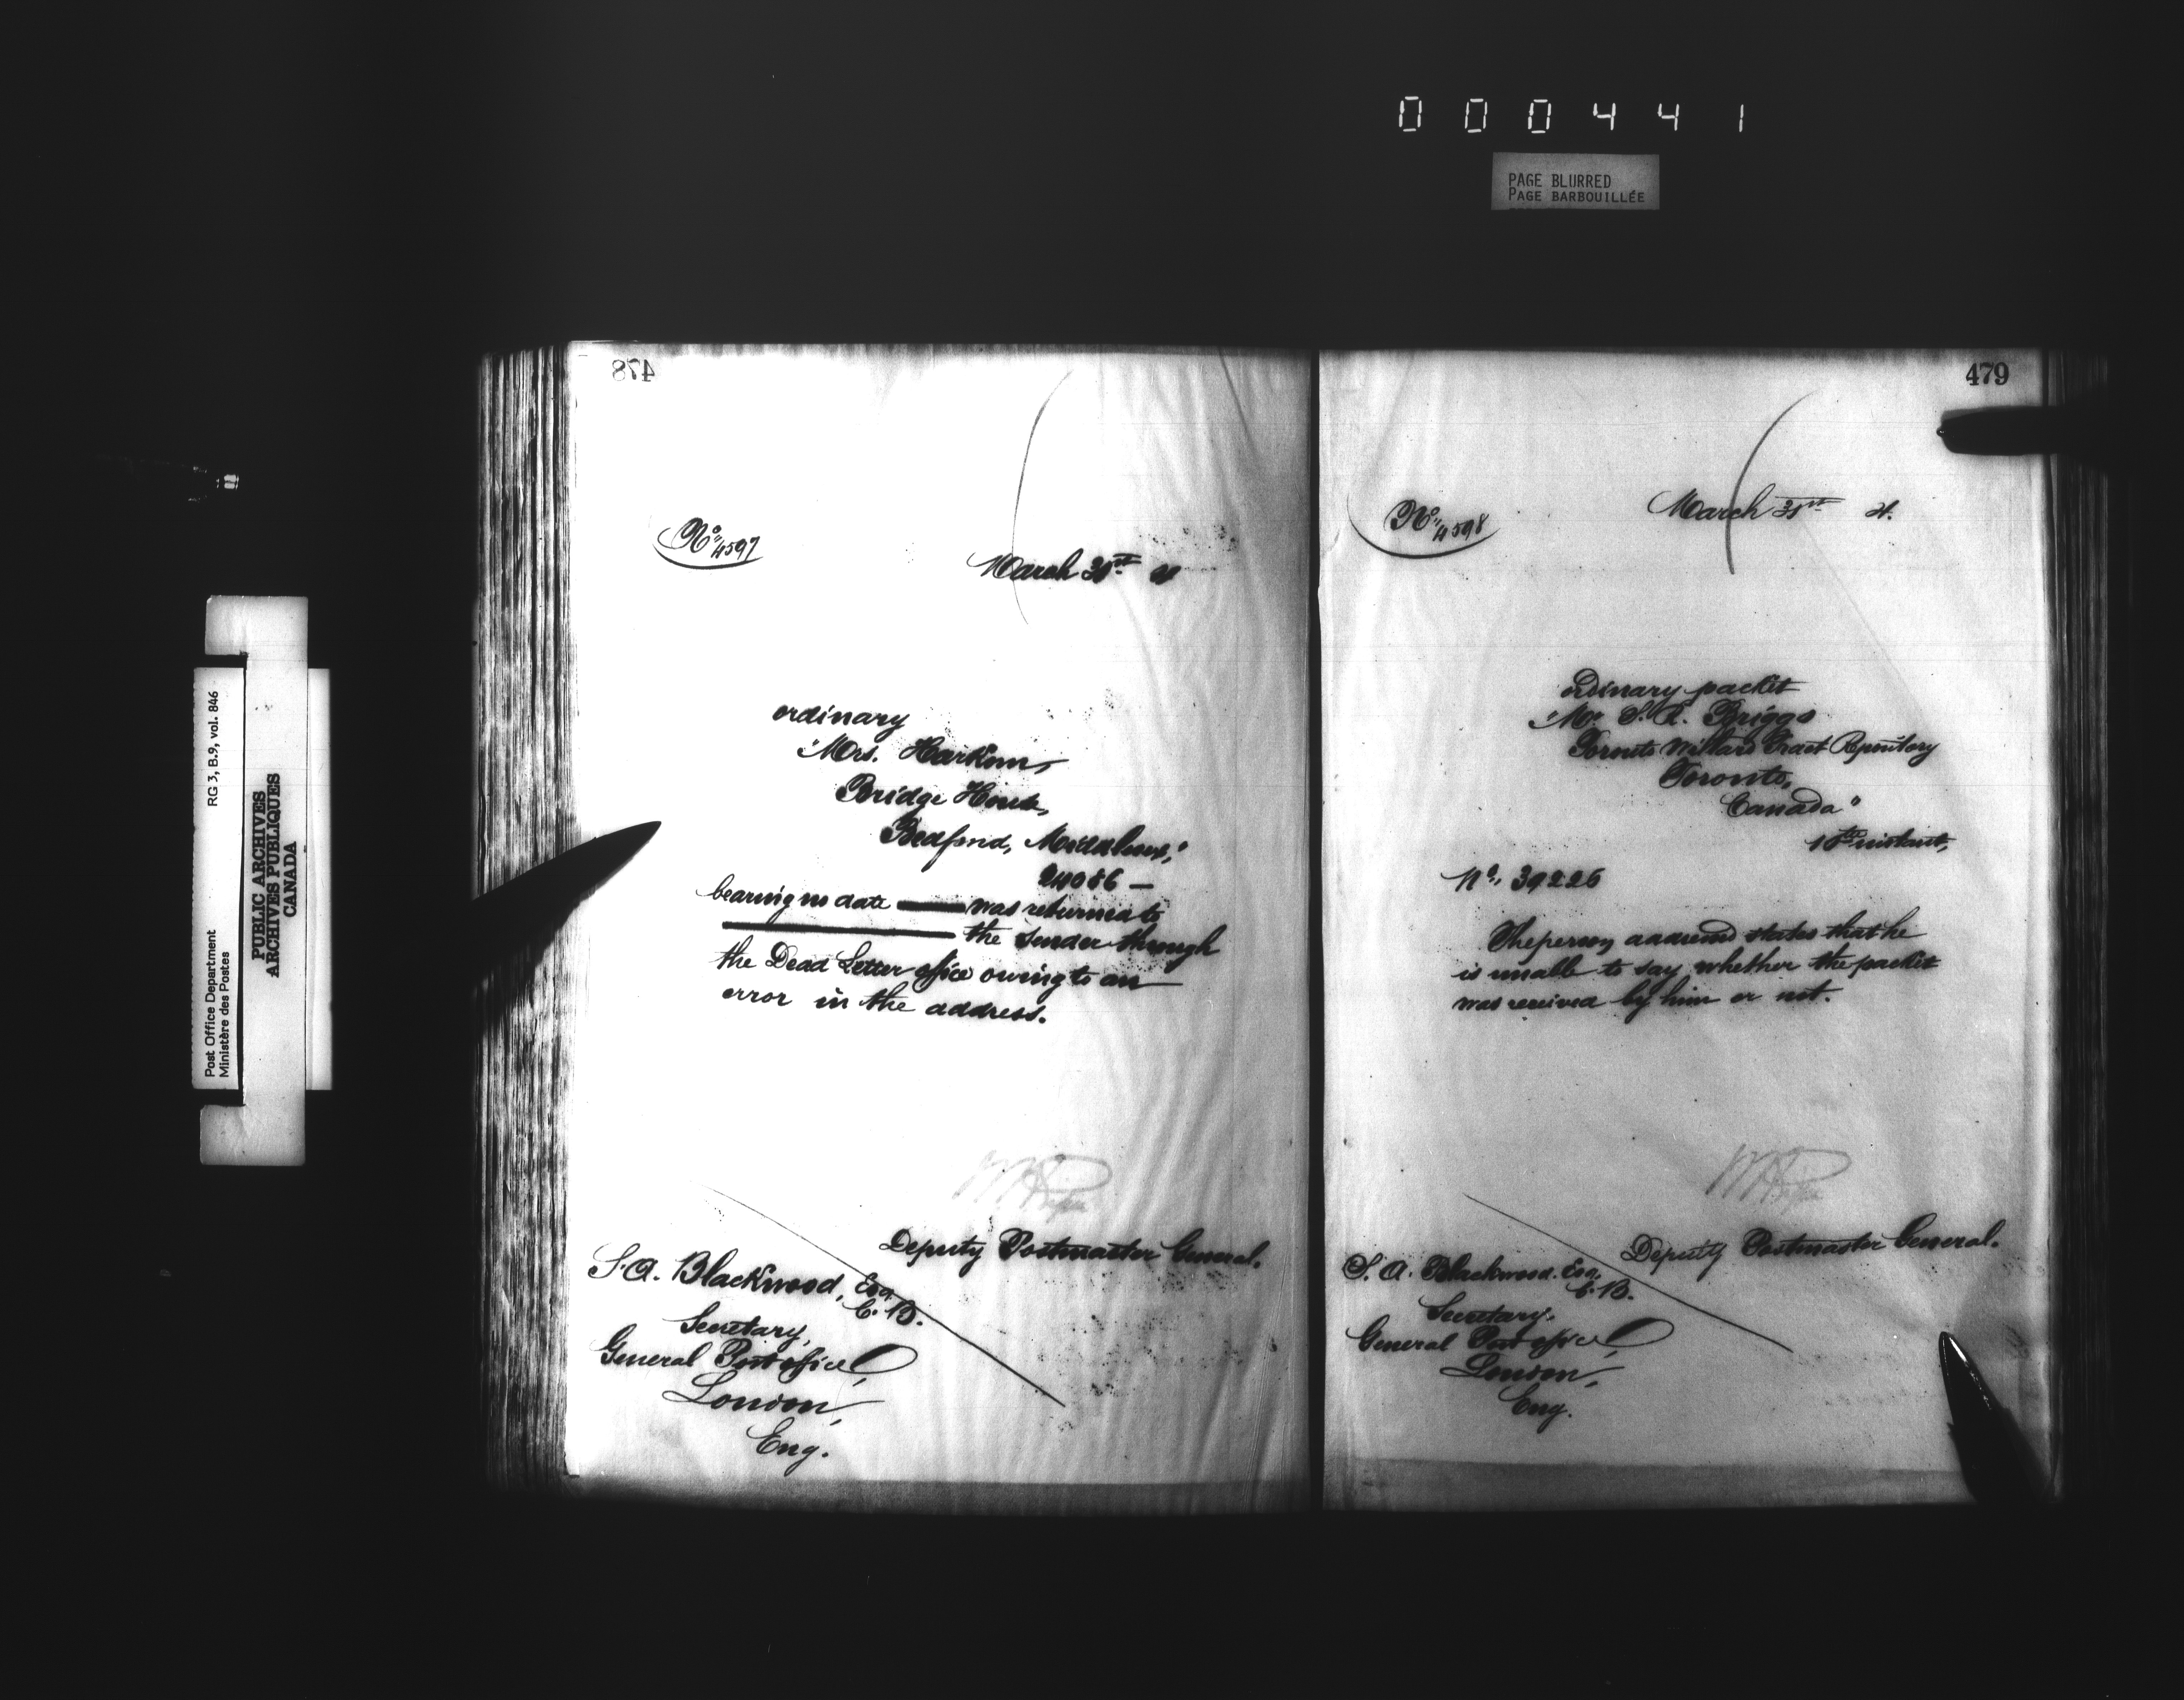 000441
PAGE BLURRED
PAGE BARBOUILLÉE
RG 3, B.9, vol. 846
Post Office Department
Ministère des Postes
PUBLIC ARCHIVES
ARCHIVES PUBLIQUES
CANADA
478
No. 4597
March 31st
ordinary
"Mrs. Harkom,
Bridge House,
Bedfond, Middlesex,"
24086 —
bearing no date was returned to
the sender through
the Dead Letter office owing to an
error in the address.
Deputy Postmaster General.
S. A. Blackwood, Esq.
C. B.
Secretary,
General Post office,
London,
Eng.
479
No. 4598
March 31st
ordinary packet
"Mr. S. R. Briggs
Toronto Willard Tract Repository
Toronto,
Canada"
instant,
No. 39226
The person addressed states that he
is unable to say whether the packet
was received by him or not.
Deputy Postmaster General.
S. A. Blackwood. Esq.
C. B.
Secretary.
General Post office,
London,
Eng.